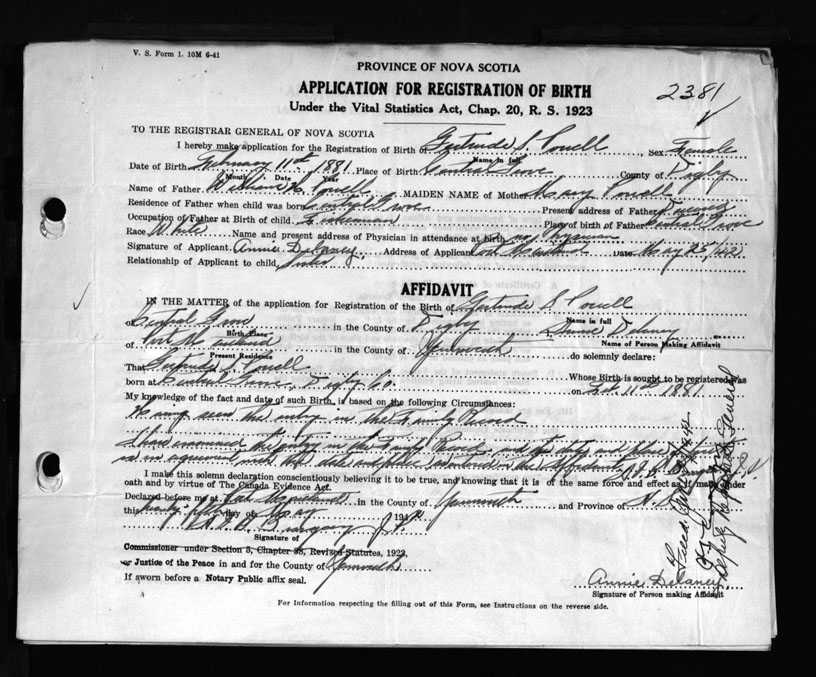 V. S. Form 1. 10M 6-41
PROVINCE OF NOVA SCOTIA
APPLICATION FOR REGISTRATION OF BIRTH
2381
Under the Vital Statistics Act, Chap. 20, R. S. 1923
TO THE REGISTRAR GENERAL OF NOVA SCOTIA
I hereby make application for the Registration of Birth of Gertrude S. Powell Sex Female
Name in full
Date of Birth February 11th 1881 Place of Birth Central Grove County of Digby
Month Date Year
Name of Father William H. Powell MAIDEN NAME of Mother Mary Powell
Residence of Father when child was born Central Grove Present address of Father
Occupation of Father at Birth of child Fisherman Place of birth of Father Central Grove
Race White Name and present address of Physician in attendance at birth no Physician
Signature of Applicant Annie Delaney Address of Applicant Port Maitland Date May 25/42
Relationship of Applicant to child Sister
AFFIDAVIT
IN THE MATTER of the application for Registration of the Birth of Gertrude S Powell
Name in full
of Central Grove in the County of Digby Annie Delaney
Birth Place Name of Person Making Affidavit
of Port Maitland in the County of Yarmouth do solemnly declare:
Present Residence
That Gertrude S. Powell Whose Birth is sought to be registered was
born at Central Grove, Digby Co. on Feb 11th 1881
My knowledge of the fact and date of such Birth, is based on the following Circumstances:
Having seen the entry in the Family Record
I have examined the entry in the Family Record and the date and place
is in agreement with the date and place mentioned in the affidavit
I make this solemn declaration conscientiously believing it to be true, and knowing that it is of the same force and effect as if made under
oath and by virtue of The Canada Evidence Act.
Declared before me at Port Maitland in the County of Yarmouth and Province of N.S.
this day of May 1942
Signature of
Commissioner under Section 5, Chapter 38, Revised Statutes, 1923,
or Justice of the Peace in and for the County of Yarmouth
If sworn before a Notary Public affix seal.
Annie Delaney
Signature of Person making Affidavit
For Information respecting the filling out of this Form, see Instructions on the reverse side.
Deputy Registrar General